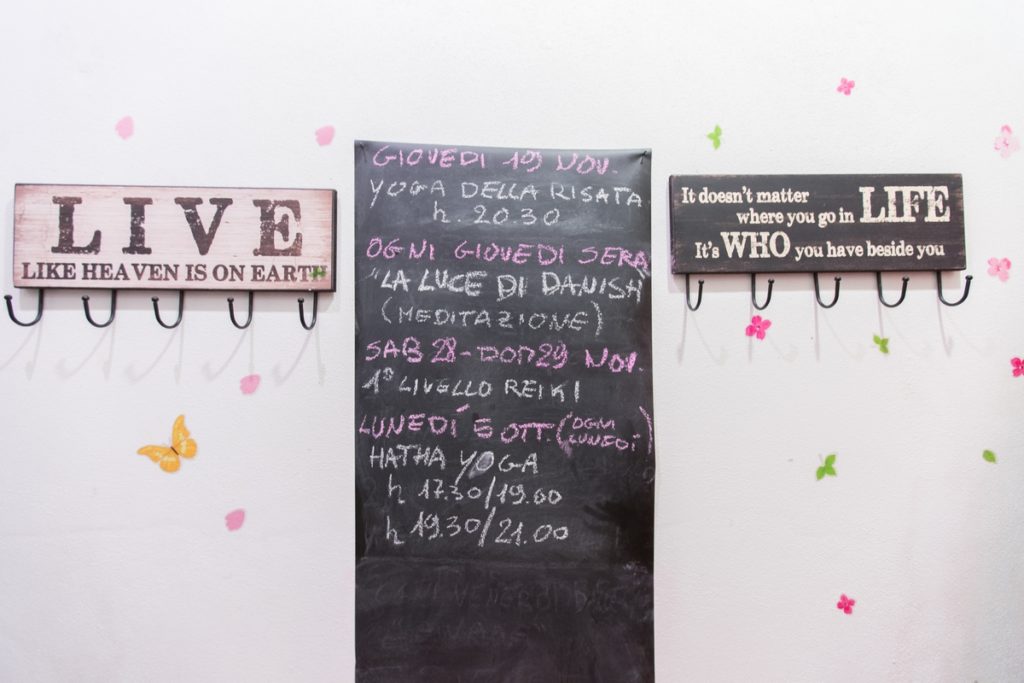 LIVE
LIKE HEAVEN IS ON EARTH
GIOVEDI 19 NOV.
YOGA DELLA RISATA
h. 20.30
OGNI GIOVEDI SERA
"LA LUCE DI DANISH
(MEDITAZIONE)
SAB 28-DOM 29 NOV.
1° LIVELLO REIKI
LUNEDÍ 5 OTT. (OGNI
LUNEDÍ)
HATHA YOGA
h 17.30/19.00
h 19.30/21.00
It doesn't matter
where you go in LIFE
It's WHO you have beside you